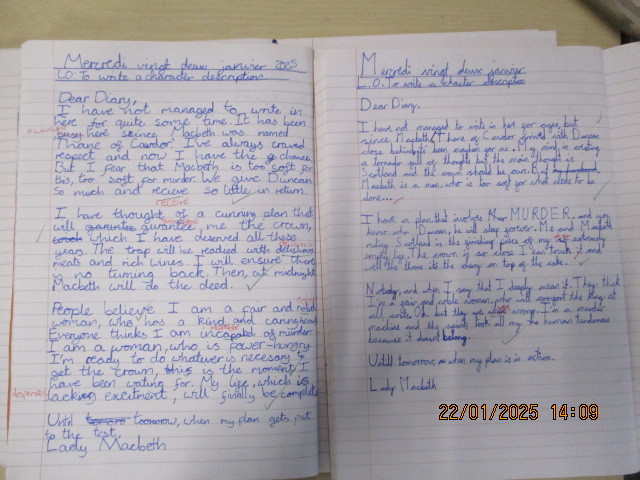 Mercredi vingt deux janvier 2025
LO: To write a character description.
Dear Diary,
I have not managed to write in
here for quite some time. It has been
here since Macbeth was named
Thane of Cawdor. I've always craved
respect and now I have the chance.
But I fear that Macbeth is too soft for
this, too soft for murder. We give Duncan
so much and recieve so little in return.
receive
I have thought of a cunning plan that
will guarantee me the crown,
which I have deserved all these
years. The trap will be readied with delicious
meats and rich wines. I will ensure there
is no turning back. Then, at midnight
Macbeth will do the deed.
People believe I am a fair and noble
woman, who has a kind and caring heart.
Everyone thinks I am incapabel of murder.
I am a woman, who is power-hungry.
I'm ready to do whatever is necessary to
get the crown, this is the moment I
have been wating for. My life, which is
lacking excitment, will finally be complete.
Until tomorow, when my plan gets put
to the test.
Lady Macbeth
Mercredi vingt deux janvier
L.O: To write a character description
Dear Diary,
I have not managed to write in here for ages, but
since Macbeth, Thane of Cawdor arrived with Duncan
close behind, its been mayhem for me. My mind is creating
a tornado full of thought but the main thought is
Scotland and the crown should be ours. But
Macbeth is a man, who is too soft for what needs to be
done...
I have a plan that involves MURDER, and you
know who Duncan, he will sleep forever. Me and Macbeth
ruling Scotland is the finishing piece of my extremely
empty life. The crown is so close I can touch it and
well the throne its the cherry on top of the cake.
Nobody, and when I say that I deeply mean it. They think
I'm a fair and noble woman, who will comfort the king at
all costs. Oh, but they are wrong. I'm a murder
machine and the spirits took all my human tenderness
because it doesnt belong.
Untill tomorrow, or when my plan is in action.
Lady Macbeth
22/01/2025 14:09